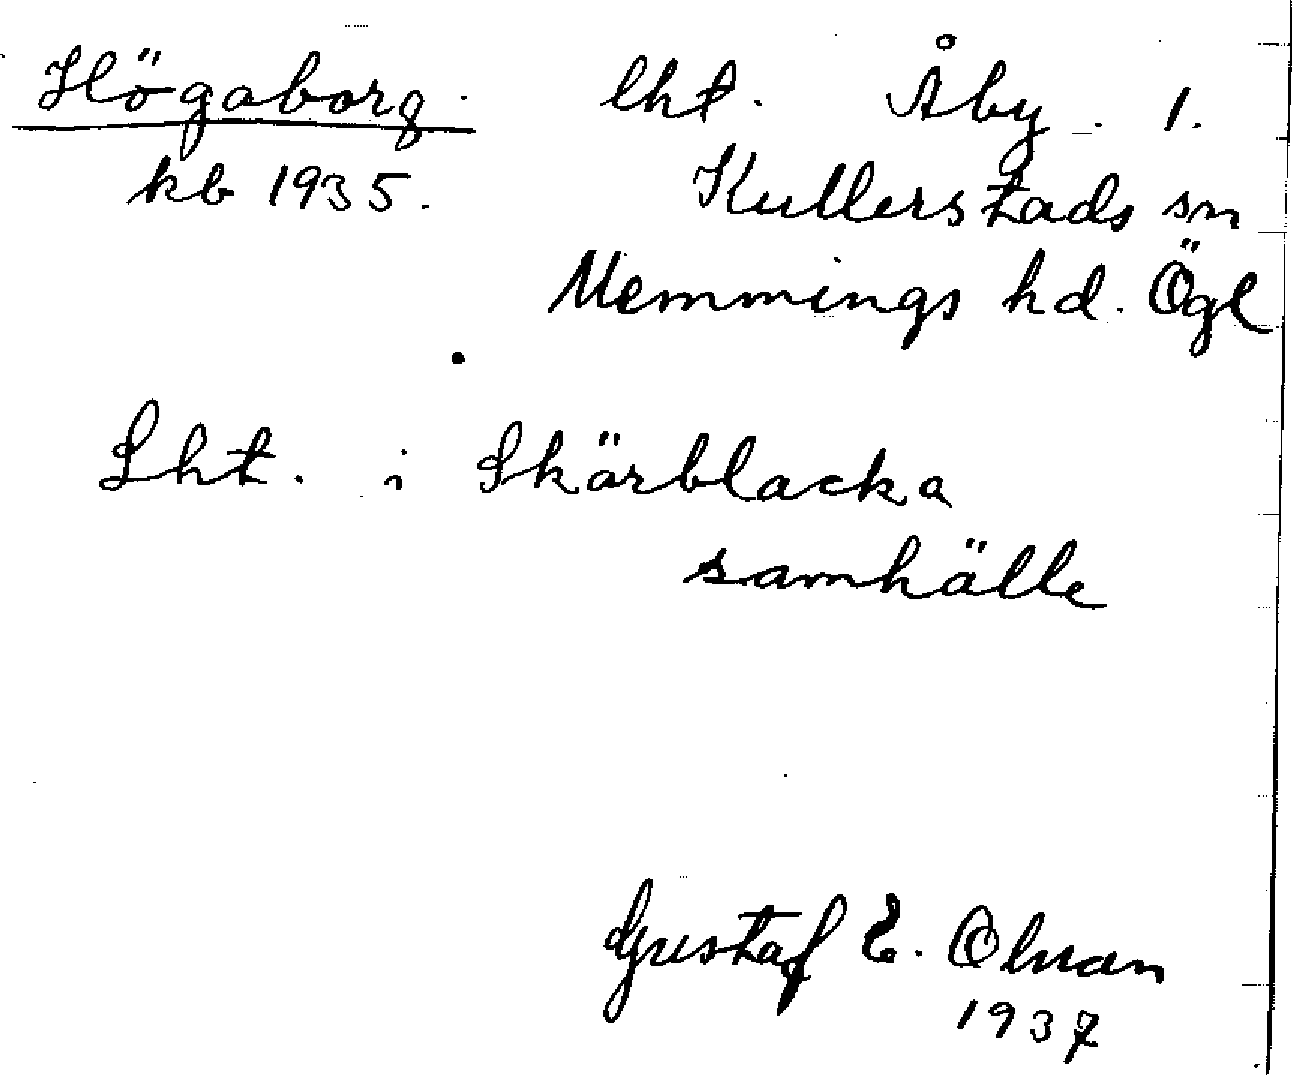 Högaborg. lht. Åby. 1.
kb 1935. Kullerstads sn
Memmings hd. Ögl
Lht. i Skärblacka
samhälle
Gustaf E. Olman
1937